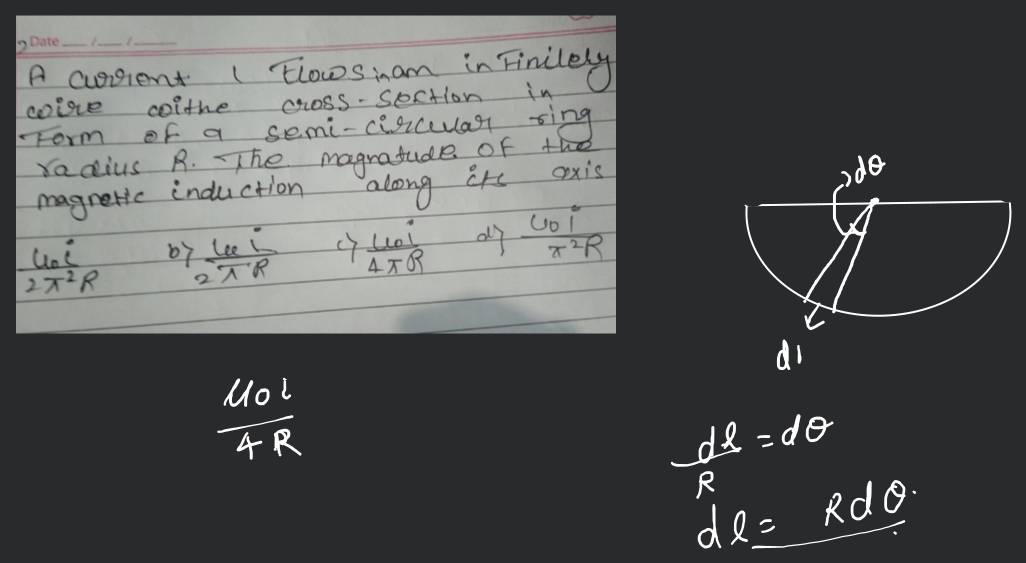 Date
A current I flows in am infinitely
wire withe cross-section in
Form of a semi-circular ring
radius R. The magnatude of the
magnetic induction along its axis
μ₀i/2π²R b) μ₀i/2πR c) μ₀i/4πR d) μ₀i/π²R
dθ
dl
μ₀i/4R
dl/R = dθ
dl = Rdθ.